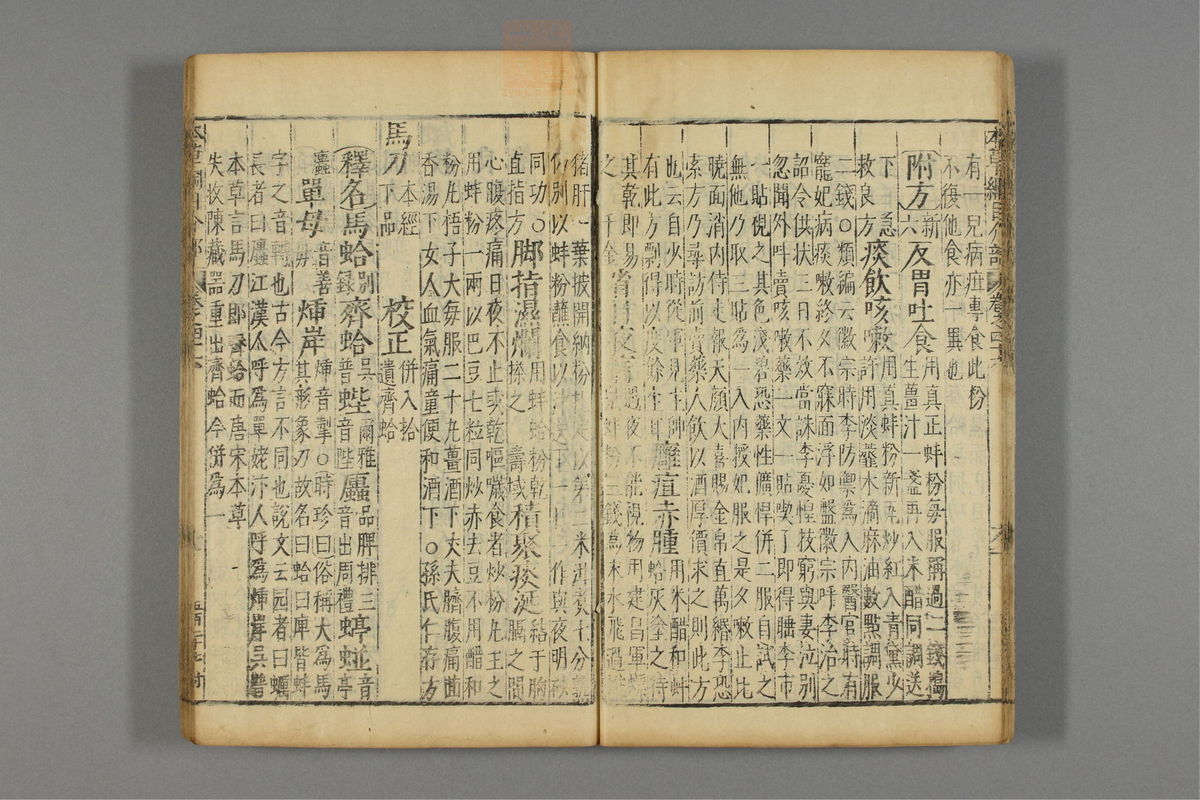 有一兒病疳專食此粉
不復他食亦一異也
附方新六反胃吐食用真正蚌粉每服稱過二錢搗
生薑汁一盞再入米醋同調送
下急
救良方痰飲咳嗽用真蚌粉新瓦炒紅入青黛少
許用淡虀水滴麻油數點調服
二錢○類編云徽宗時李防禦為入內醫官時有
寵妃病痰嗽終夕不寐面浮如盤徽宗呼李治之
詔令供狀三日不效當誅李憂惶技窮與妻泣別
忽聞外叫賣咳嗽藥一文一貼喫了即得睡李市
一貼視之其色淺碧恐藥性獷悍併二服自試之
無他乃取三貼為一入內授妃服之是夕嗽止比
曉面消內侍走報天顏大喜賜金帛直萬緡李恐
索方乃尋訪前賣藥人飲以酒厚價求之則此方
也云自少時從軍見主帥
有此方剽得以度餘生耳癰疽赤腫用米醋和蚌
蛤灰塗之待
其乾即易
之千金雀目夜盲遇夜不能視物用建昌軍螺
蚌粉三錢為末水飛過
猪肝一葉披開納粉扎定以第二米泔煮十分熟
仍別以蚌粉蘸食以汁送下一日一作與夜明砂
同功○
直指方脚指濕爛用蚌蛤粉乾
摻之壽域積聚痰涎結于胸
膈之間
心腹疼痛日夜不止或乾嘔噦食者炒粉丸主之
用蚌粉一兩以巴豆七粒同炒赤去豆不用醋和
粉丸梧子大每服二十丸薑酒下丈夫臍腹痛茴
香湯下女人血氣痛童便和酒下○孫氏仁存方
馬刀本經
下品校正併入拾
遺齊蛤
釋名馬蛤別
錄齊蛤吳
普蜌爾雅品
音陛䗯脾排三
音出周禮蝏蛖音亭
䗯單母音善
母𧐐岸𧐐音掣○時珍曰俗稱大為馬
其形象刀故名曰蛤曰䗯皆蚌
字之音轉也古今方言不同也說文云圓者曰蠣
長者曰䗯江漢人呼為單姥汴人呼為𧐐岸吳普
本草言馬刀即齊蛤而唐宋本草
失收陳藏器重出齊蛤今併為一
本草綱目介部 卷之四十六